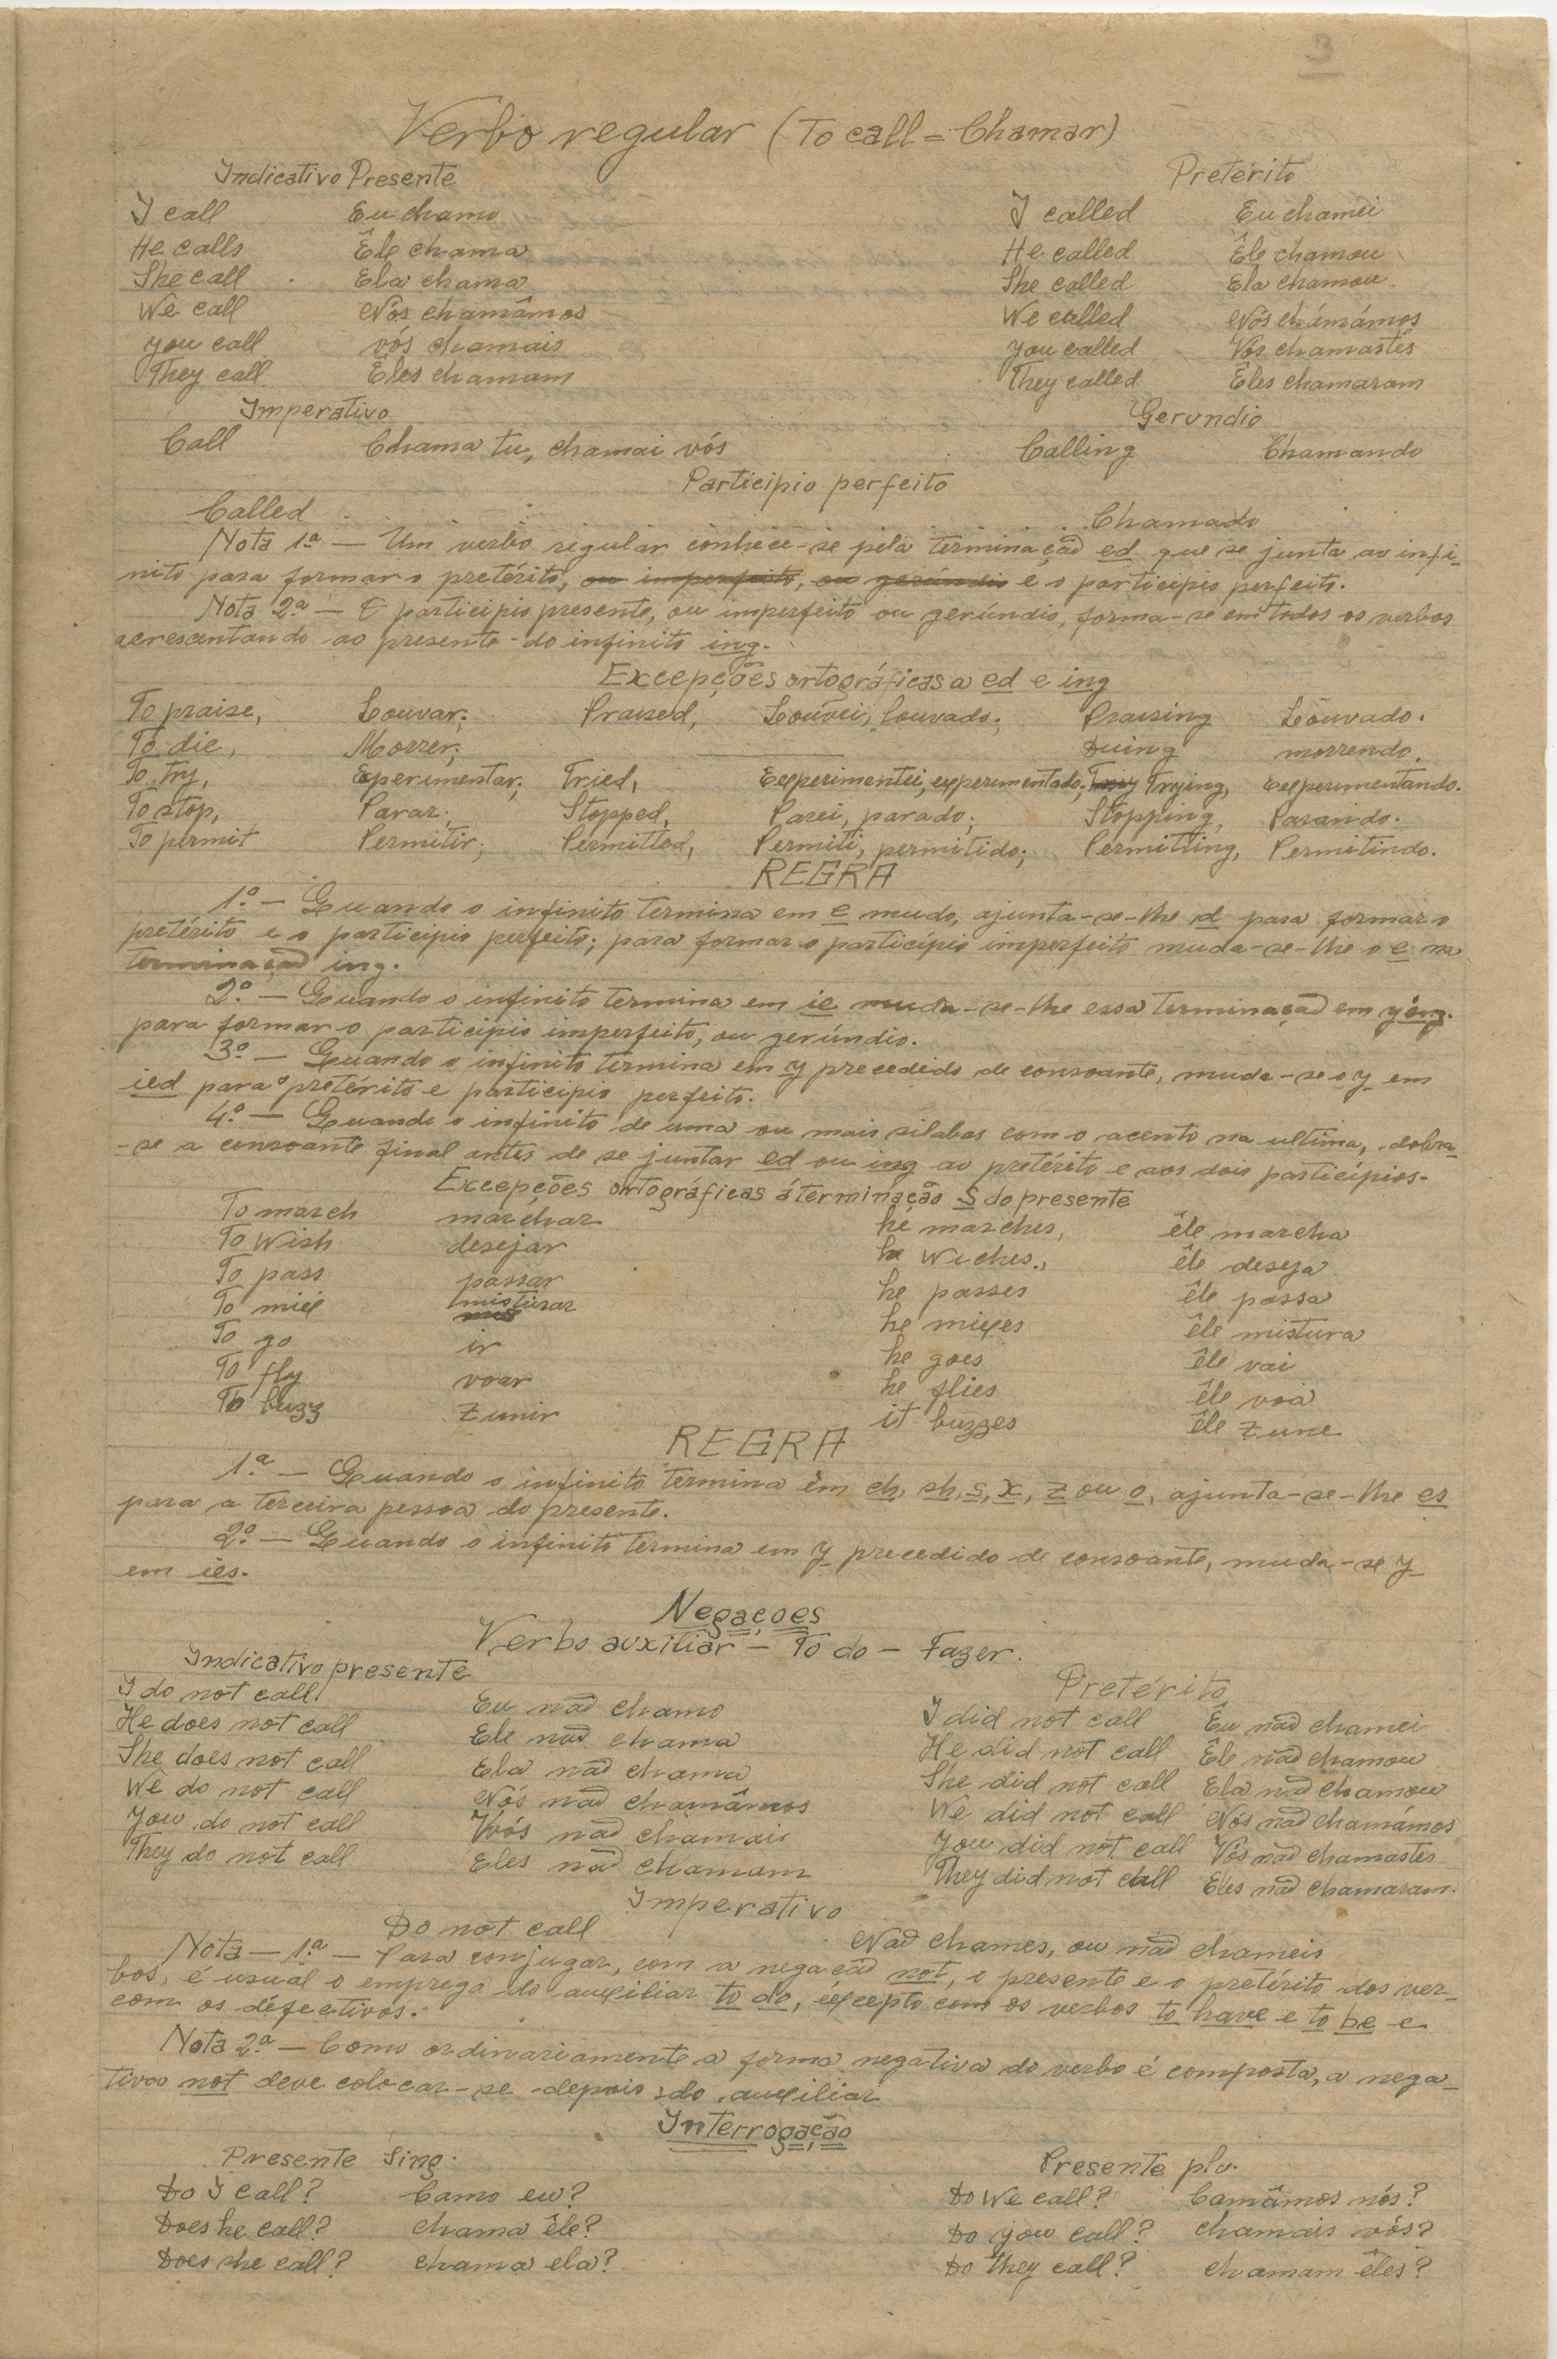 3
Verbo regular (To call = Chamar)
Indicativo Presente Pretérito
I call Eu chamo I called Eu chamei
He calls Êle chama He called Êle chamou
She call Ela chama She called Ela chamou
We call Nós chamâmos We called Nós chámámos
you call vós chamais you called Vós chamastes
They call Êles chamam They called Êles chamaram
Imperativo Gerundio
Call Chama tu, chamai vós Calling Chamando
Participio perfeito
Called Chamado
Nota 1ª — Um verbo regular conhece-se pela terminação ed que se junta ao infi-
nito para formar o pretérito, ou imperfeito, ou gerúndio e o participio perfeito.
Nota 2ª — O participio presente, ou imperfeito ou gerúndio, forma-se em todos os verbos
acrescentando ao presente do infinito ing.
Excepções ortográficas a ed e ing
To praise, Louvar; Praised, Louvei, louvado; Praising Louvado.
To die, Morrer; Duing morrendo.
To try, Experimentar; Tried, Experimentei, experimentado; Trying, experimentando.
To stop, Parar; Stopped, Parei, parado; Stopping, Parando.
To permit Permitir; Permitted, Permiti, permitido; Permitting, Permitindo.
REGRA
1.º — Quando o infinito termina em e mudo, ajunta-se-lhe d para formar o
pretérito e o participio perfeito; para formar o participio imperfeito muda-se-lhe o e na
terminação ing.
2.º — Quando o infinito termina em ie muda-se-lhe essa terminação em ying.
para formar o participio imperfeito, ou gerúndio.
3.º — Quando o infinito termina em y precedido de consoante, muda-se o y em
ied para o pretérito e participio perfeito.
4.º — Quando o infinito de uma ou mais silabas com o acento na ultima, dobra-
-se a consoante final antes de se juntar ed ou ing ao pretérito e aos dois participios.
Excepções ortográficas á terminação S do presente
To march marchar he marches, êle marcha
To wish desejar he wiches., êle deseja
To pass passar he passes êle passa
To mix misturar he mixes êle mistura
To go ir he goes êle vai
To fly voar he flies êle voa
To buzz zunir it buzzes êle zune
REGRA
1.ª — Quando o infinito termina em ch, sh, s, x, z ou o, ajunta-se-lhe es
para a terceira pessoa do presente.
2.º — Quando o infinito termina em y precedido de consoante, muda-se y
em ies.
Negaçoes
Verbo auxiliar — To do — Fazer.
Indicativo presente Pretérito
I do not call Eu não chamo I did not call Eu não chamei
He does not call Ele não chama He did not call Êle não chamou
She does not call Ela não chama She did not call Ela não chamou
We do not call Nós não chamâmos We did not call Nós não chamámos
You do not call Vós não chamais You did not call Vós não chamastes
They do not call Eles não chamam They did not call Eles não chamaram.
Imperativo
Do not call Não chames, ou não chameis
Nota — 1.ª — Para conjugar, com a negação not, o presente e o pretérito dos ver-
bos, é usual o emprego do auxiliar to do, excepto com os verbos to have e to be e
com os défectivos.
Nota 2.ª — Como ordinariamente a forma negativa do verbo é composta, a nega-
tiva not deve colocar-se depois do auxiliar
Interrogação
Presente Sing. Presente plu.
Do I call? Camo eu? Do We call? Camâmos nós?
Does he call? chama êle? Do you call? chamais vós?
Does she call? chama ela? Do they call? chamam êles?